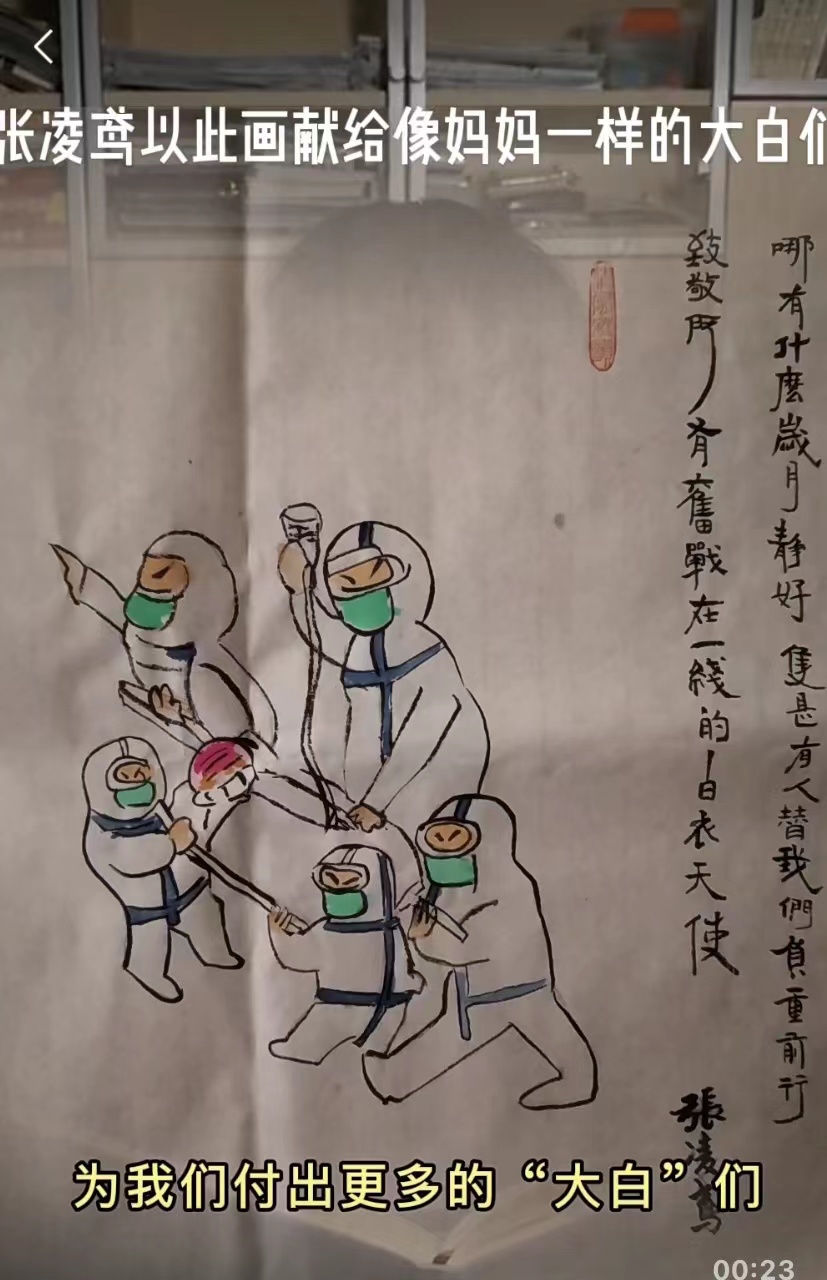 张凌鸢以此画献给像妈妈一样的大白们
哪有什麼歲月靜好 隻是有人替我們負重前行
致敬所有奮戰在一綫的白衣天使
張凌鸢
为我们付出更多的“大白”们
00:23